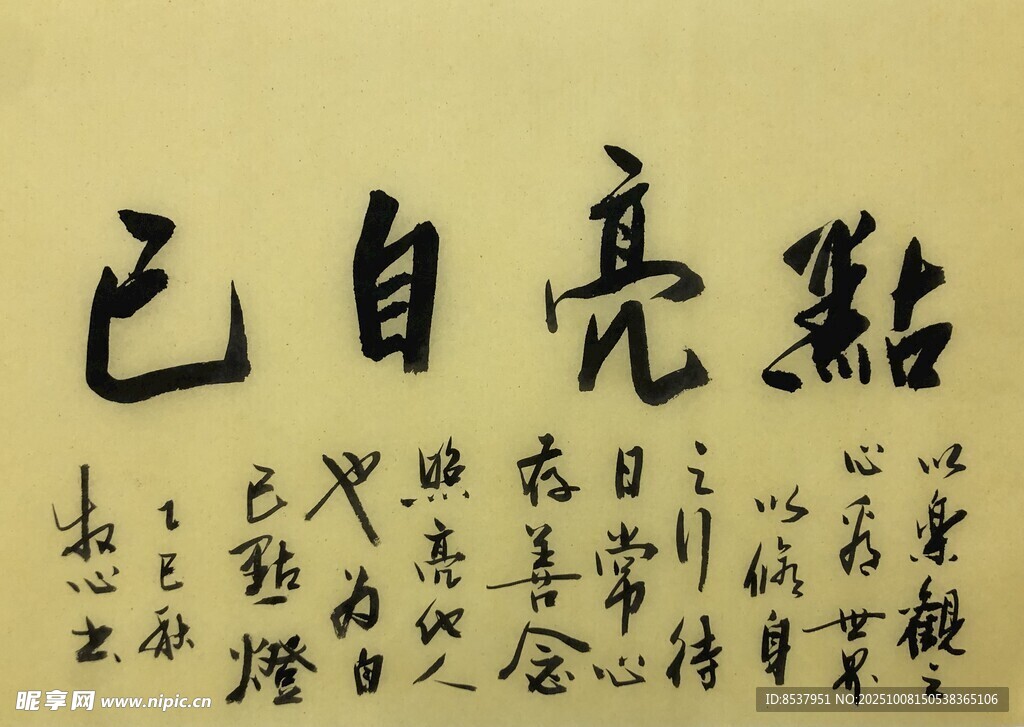 點亮自己
以樂觀之
心看世界
以修身
之行待
日常心
存善念
照亮他人
也为自
己點一燈
乙巳秋
牧心书
昵享网 www.nipic.cn
ID:8537951 NO:20251008150538365106